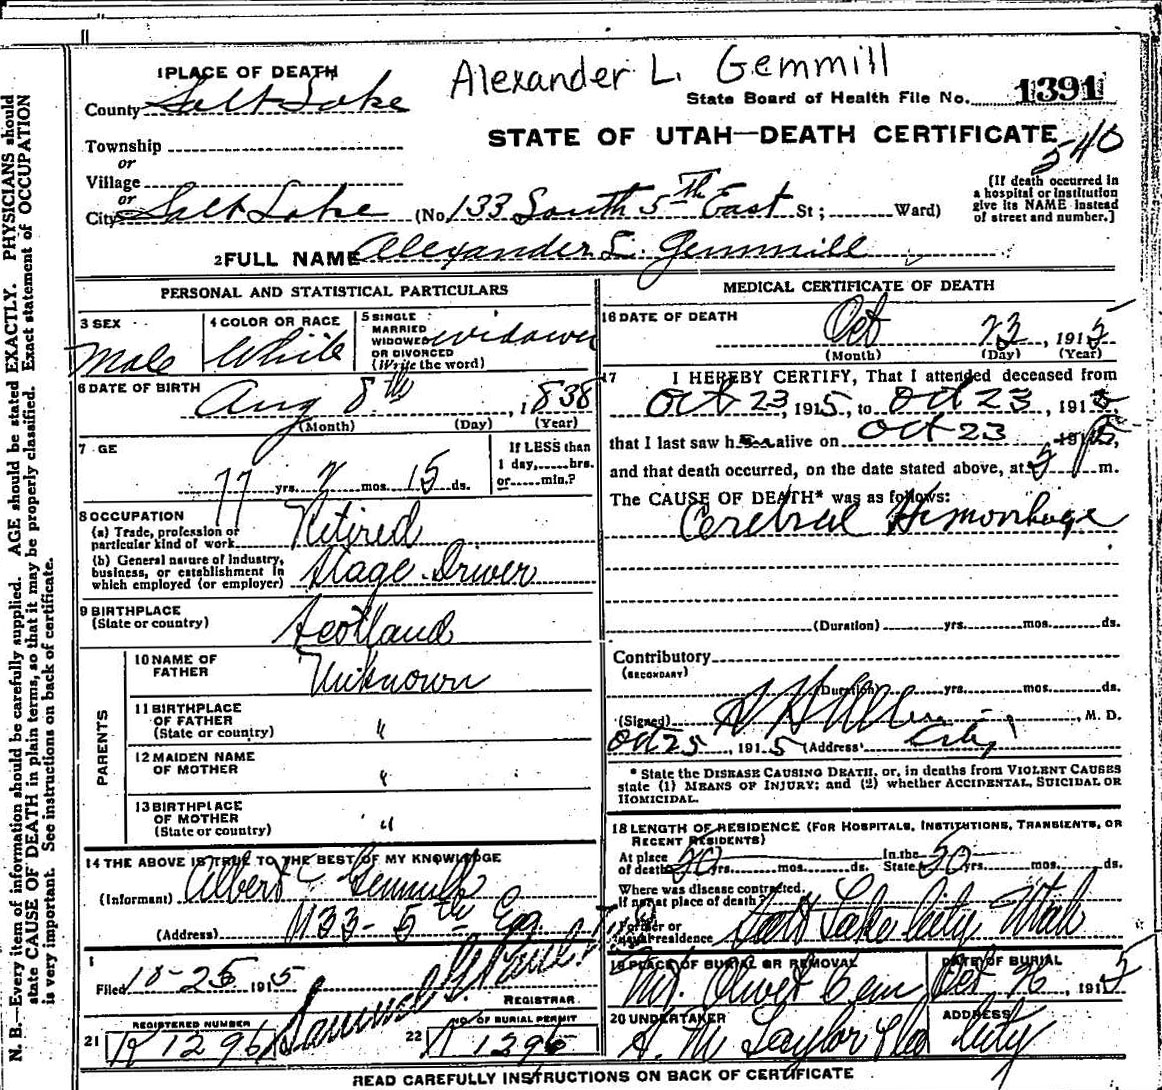 Alexander L. Gemmill
1 PLACE OF DEATH
County Salt Lake
State Board of Health File No. 1391
STATE OF UTAH—DEATH CERTIFICATE
540
Township
or
Village
or
City Salt Lake (No. 133 South 5th East St; Ward)
[If death occurred in
a hospital or institution
give its NAME instead
of street and number.]
2 FULL NAME Alexander L. Gemmill
PERSONAL AND STATISTICAL PARTICULARS
3 SEX
Male
4 COLOR OR RACE
White
5 SINGLE
MARRIED
WIDOWED
OR DIVORCED
(Write the word)
widower
6 DATE OF BIRTH
Aug 8th, 1838
(Month) (Day) (Year)
7 GE
77 yrs. 2 mos. 15 ds.
If LESS than
1 day, hrs.
or min.?
8 OCCUPATION
(a) Trade, profession or
particular kind of work Retired
(b) General nature of industry,
business, or establishment in
which employed (or employer) Stage Driver
9 BIRTHPLACE
(State or country) Scotland
PARENTS
10 NAME OF
FATHER Unknown
11 BIRTHPLACE
OF FATHER
(State or country) "
12 MAIDEN NAME
OF MOTHER "
13 BIRTHPLACE
OF MOTHER
(State or country) "
14 THE ABOVE IS TRUE TO THE BEST OF MY KNOWLEDGE
(Informant) Albert Gemmill
(Address) 5th
Filed 10-25 1915
REGISTRAR
21 REGISTERED NUMBER
1296
22 NO. OF BURIAL PERMIT
1296
MEDICAL CERTIFICATE OF DEATH
16 DATE OF DEATH
Oct 23, 1915
(Month) (Day) (Year)
17 I HEREBY CERTIFY, That I attended deceased from
Oct 23, 1915, to Oct 23, 1915
that I last saw h alive on Oct 23 1915,
and that death occurred, on the date stated above, at 5 P m.
The CAUSE OF DEATH* was as follows:
Cerebral Hemorhage
(Duration) yrs. mos. ds.
Contributory
(SECONDARY)
(Duration) yrs. mos. ds.
(Signed) M. D.
Oct 25, 1915 (Address) City
* State the DISEASE CAUSING DEATH, or, in deaths from VIOLENT CAUSES
state (1) MEANS OF INJURY; and (2) whether ACCIDENTAL, SUICIDAL OR
HOMICIDAL.
18 LENGTH OF RESIDENCE (FOR HOSPITALS, INSTITUTIONS, TRANSIENTS, OR
RECENT RESIDENTS)
At place
of death 50 yrs. mos. ds. In the
State 50 yrs. mos. ds.
Where was disease contracted.
If not at place of death?
Former or
usual residence Salt Lake City Utah
19 PLACE OF BURIAL OR REMOVAL
Mt. Olivet Cem
DATE OF BURIAL
Oct 26, 1915
20 UNDERTAKER
S. M. Taylor & Co
ADDRESS
City
READ CAREFULLY INSTRUCTIONS ON BACK OF CERTIFICATE
N. B.—Every item of information should be carefully supplied. AGE should be stated EXACTLY. PHYSICIANS should
state CAUSE OF DEATH in plain terms, so that it may be properly classified. Exact statement of OCCUPATION
is very important. See instructions on back of certificate.